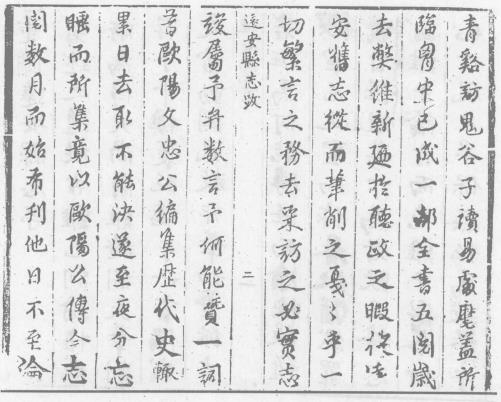 青谿訪鬼谷子讀易處麾蓋所
臨胷中已成一部全書五閱歲
去弊維新廼於聽政之暇從
安舊志從而筆削之戞〻乎一
切繁言之務去采訪之必實志
遠安縣志跋
二
竣屬予弁數言予何能贊一詞
昔歐陽文忠公編集歴代史輒
累日去取不能決遂至夜分忘
睡而所集竟以歐陽公傳今志
閱数月而始布刊他日不至淪